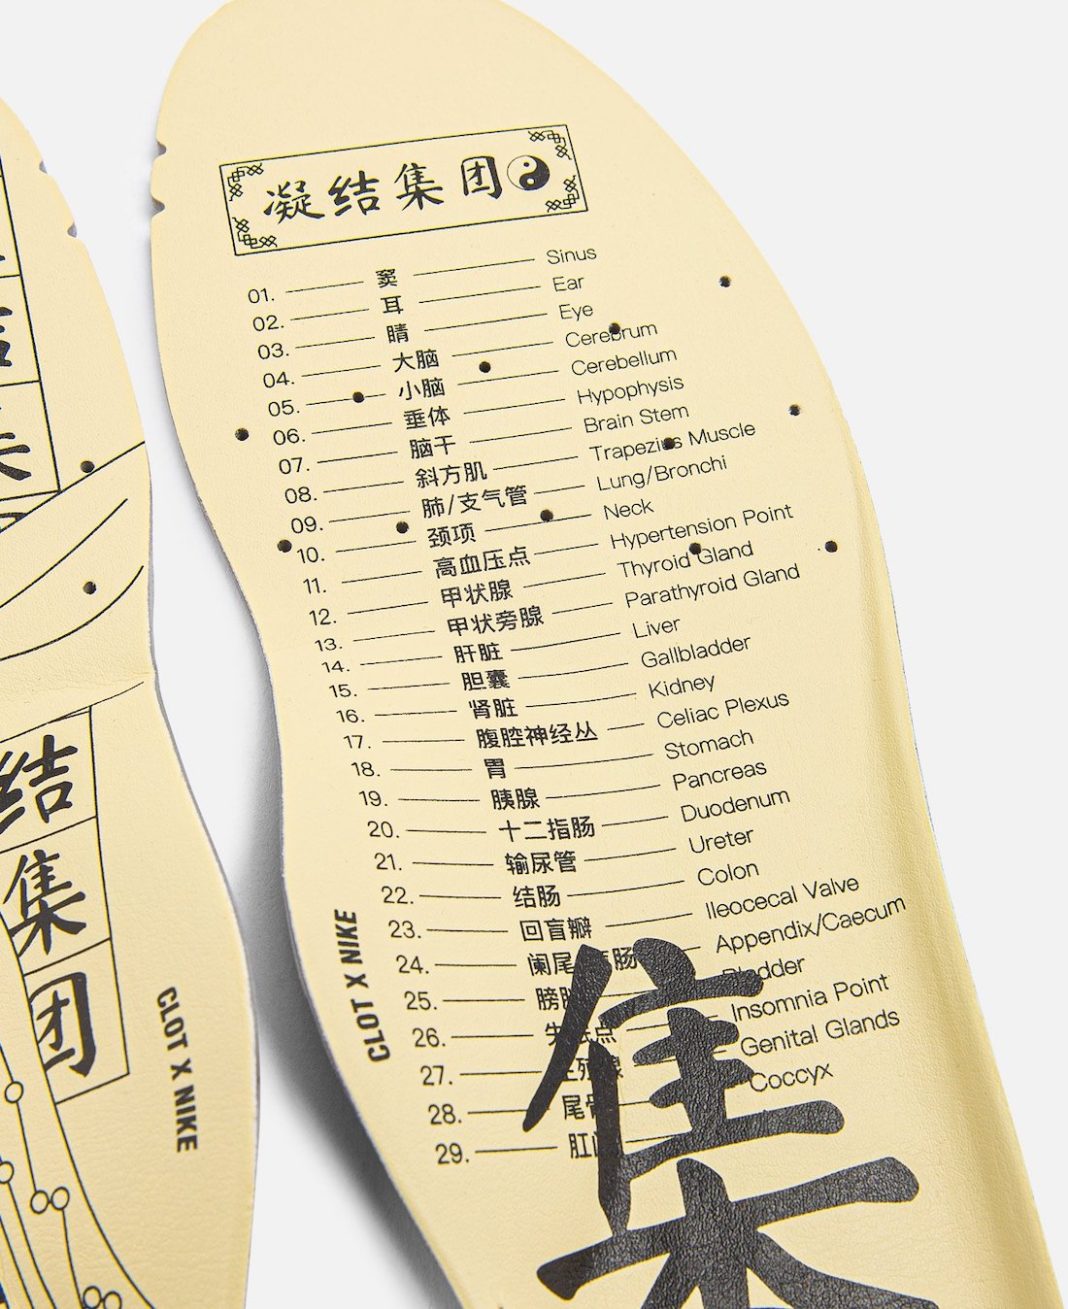 凝结集团
01. 窦 Sinus
02. 耳 Ear
03. 睛 Eye
04. 大脑 Cerebrum
05. 小脑 Cerebellum
06. 垂体 Hypophysis
07. 脑干 Brain Stem
08. 斜方肌 Trapezius Muscle
09. 肺/支气管 Lung/Bronchi
10. 颈项 Neck
11. 高血压点 Hypertension Point
12. 甲状腺 Thyroid Gland
13. 甲状旁腺 Parathyroid Gland
14. 肝脏 Liver
15. 胆囊 Gallbladder
16. 肾脏 Kidney
17. 腹腔神经丛 Celiac Plexus
18. 胃 Stomach
19. 胰腺 Pancreas
20. 十二指肠 Duodenum
21. 输尿管 Ureter
22. 结肠 Colon
23. 回盲瓣 Ileocecal Valve
24. 阑尾 肠 Appendix/Caecum
25. 膀 Bladder
26. 点 Insomnia Point
27. Genital Glands
28. 尾骨 Coccyx
29. 肛
CLOT X NIKE
集
结
集
团
CLOT X NIKE